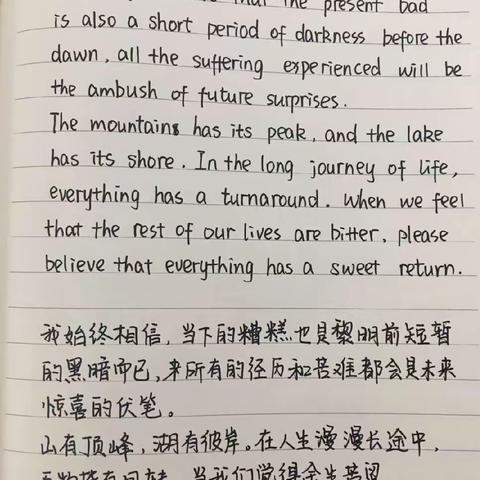 the present bad
is also a short period of darkness before the
dawn, all the suffering experienced will be
the ambush of future surprises.
The mountains has its peak, and the lake
has its shore. In the long journey of life,
everything has a turnaround. When we feel
that the rest of our lives are bitter, please
believe that everything has a sweet return.
我始终相信，当下的糟糕也是黎明前短暂
的黑暗而已，来所有的经历和苦难都会是未来
惊喜的伏笔。
山有顶峰，湖有彼岸。在人生漫漫长途中，
万物皆有回转，当我们觉得余生苦涩